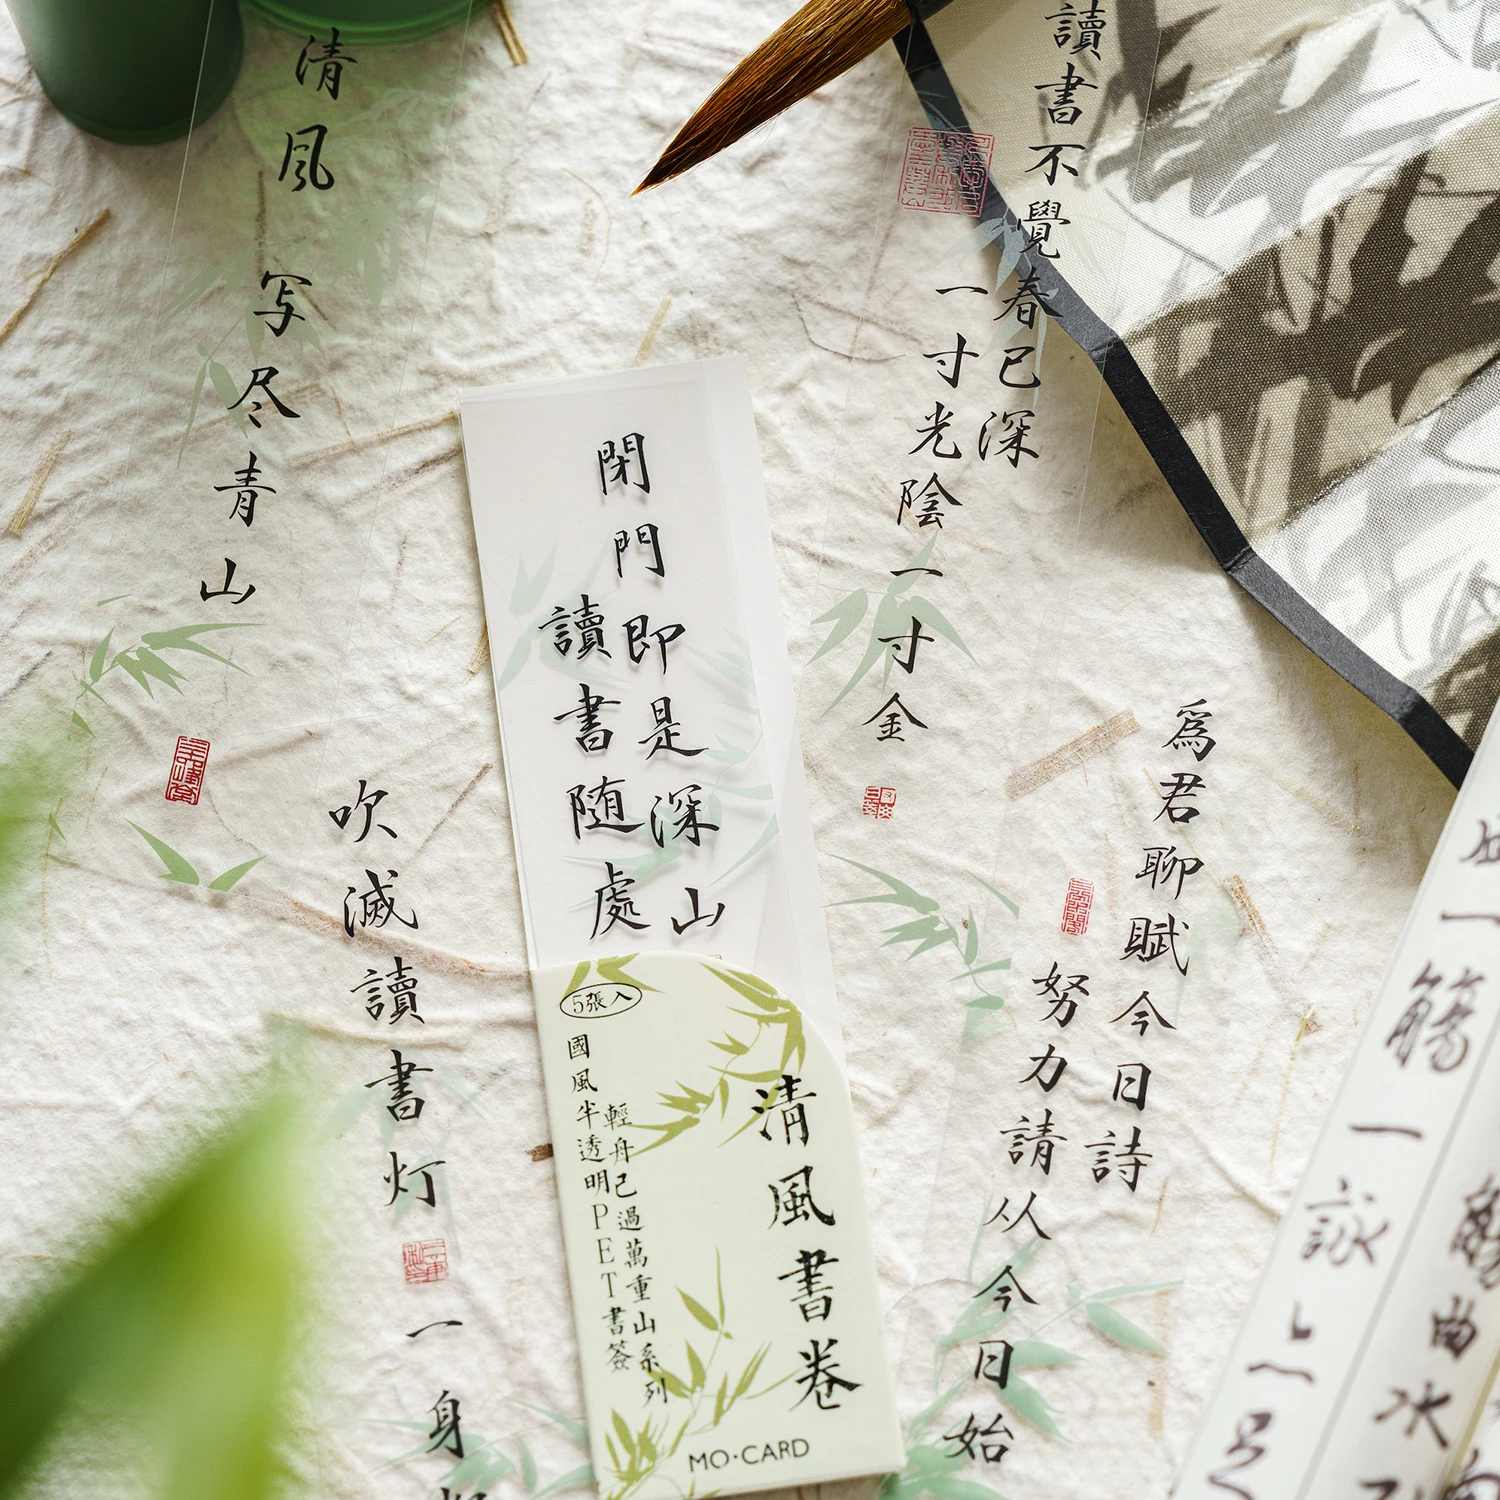 清風
写尽青山
吹滅讀書灯
一身
閉門即是深山
讀書随處
5張入
清風書卷
輕舟已過萬重山系列
國風半透明PET書簽
MO·CARD
讀書不覺春已深
一寸光陰一寸金
爲君聊賦今日詩
努力請从今日始
一觴一詠